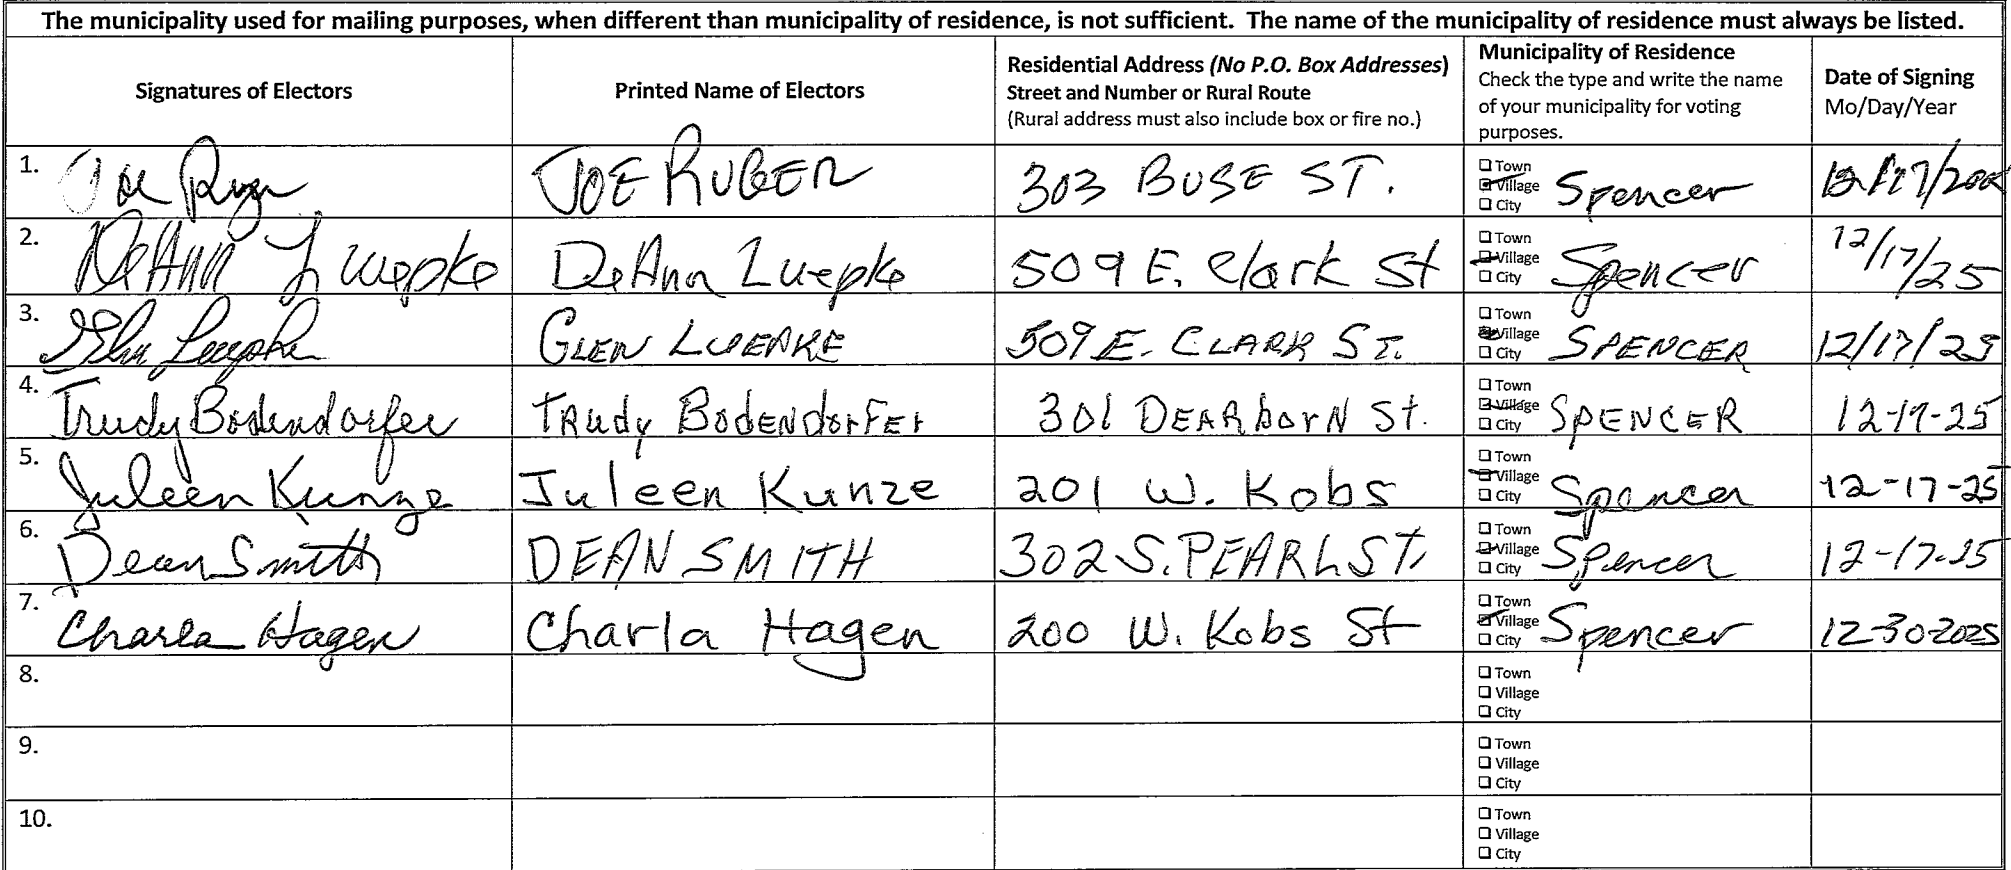 The municipality used for mailing purposes, when different than municipality of residence, is not sufficient. The name of the municipality of residence must always be listed.
Signatures of Electors
Printed Name of Electors
Residential Address (No P.O. Box Addresses)
Street and Number or Rural Route
(Rural address must also include box or fire no.)
Municipality of Residence
Check the type and write the name
of your municipality for voting
purposes.
Date of Signing
Mo/Day/Year
1. Joe JOE RUGER 303 BUSE ST. Town Village City Spencer
2. DeAnn Luepke DeAnn Luepke 509 E. Clark St Town Village City Spencer 12/17/25
3. Glen Luepke GLEN LUEPKE 509 E. CLARK ST. Town Village City SPENCER 12/17/25
4. Trudy Bodendorfer TRudy BODENdorFEr 301 DEARborN St. Town Village City SPENCER 12-17-25
5. Juleen Kunze Juleen Kunze 201 W. Kobs Town Village City Spencer 12-17-25
6. Dean Smith DEAN SMITH 302 S. PEARL ST. Town Village City Spencer 12-17-25
7. Charla Hagen Charla Hagen 200 W. Kobs St Town Village City Spencer 12-30-2025
8. Town Village City
9. Town Village City
10. Town Village City